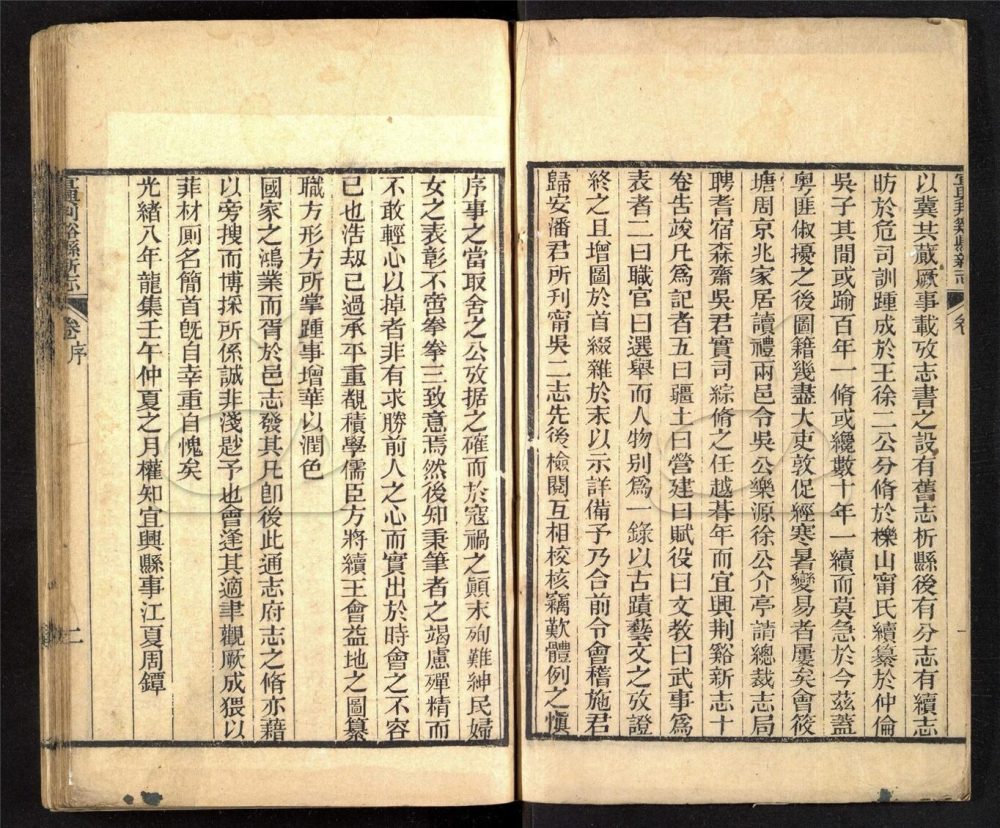 以冀共藏厥事載攷志書之設有舊志析縣後有分志有續志
昉於危司訓踵成於王徐二公分脩於櫟山甯氏續纂於仲倫
吳子其間或踰百年一脩或纔數十年一續而莫急於今茲蓋
粵匪俶擾之後圖籍幾盡大吏敦促經寒暑變易者屢矣會筱
塘周京兆家居讀禮兩邑令吳公樂源徐公介亭請總裁志局
聘耆宿森齋吳君實司綜脩之任越朞年而宜興荆谿新志十
卷告竣凡爲記者五曰疆土曰營建曰賦役曰文教曰武事爲
表者二曰職官曰選舉而人物別爲一錄以古蹟藝文之攷證
終之且增圖於首綴雜於末以示詳備予乃合前令會稽施君
歸安潘君所刊甯吳二志先後檢閱互相校核竊歎體例之愼
宜興荆谿縣新志 卷 一
序事之當取舍之公攷据之確而於寇禍之顚末殉難紳民婦
女之表彰不啻拳拳三致意焉然後知秉筆者之竭慮殫精而
不敢輕心以掉者非有求勝前人之心而實出於時會之不容
已也浩刼已過承平重覩積學儒臣方將續王會益地之圖纂
職方形方所掌踵事增華以潤色
國家之鴻業而胥於邑志發其凡卽後此通志府志之脩亦藉
以旁搜而博採所係誠非淺尟予也會逢其適聿觀厥成猥以
菲材厠名簡首旣自幸重自愧矣
光緒八年龍集壬午仲夏之月權知宜興縣事江夏周鐔
宜興荆谿縣新志 卷序 二